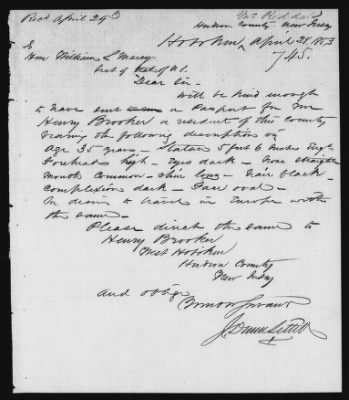 Recd April 29th
Hudson County New Jersey
Hoboken April 28, 1853
745.
To
Hon William L Marcy
Sect of State of U.S.
Dear Sir.
Will be kind enough
to have sent a Passport for Mr
Henry Brooker a resident of this County
bearing the following description viz
Age 35 years - Stature 5 feet 6 Inches Engl
Forehead high - Eyes dark - Nose straight
Mouth common - Chin long - Hair black -
Complexion dark - Face oval -
He desires to travel in Europe with
the same -
Please direct the same to
Henry Brooker
West Hoboken
Hudson County
New Jersey
And oblige
Servant